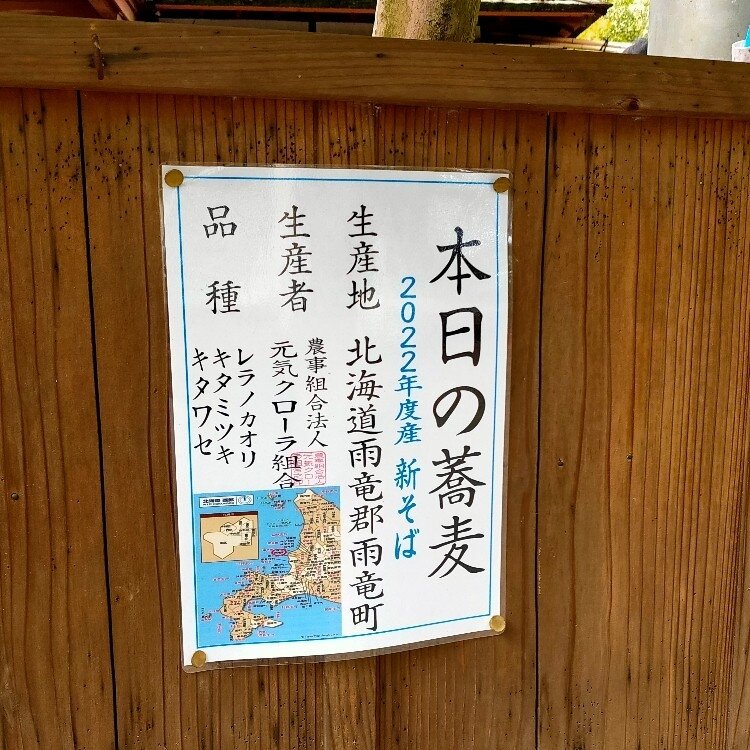 本日の蕎麦
2022年度産 新そば
生産地 北海道雨竜郡雨竜町
生産者 農事組合法人
元気クローラ組合
品種 レラノカオリ
キタミツキ
キタワセ